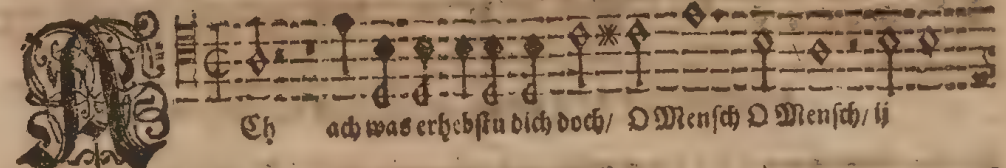 ACh ach was erhebstu dich doch/ O Mensch O Mensch/ ij